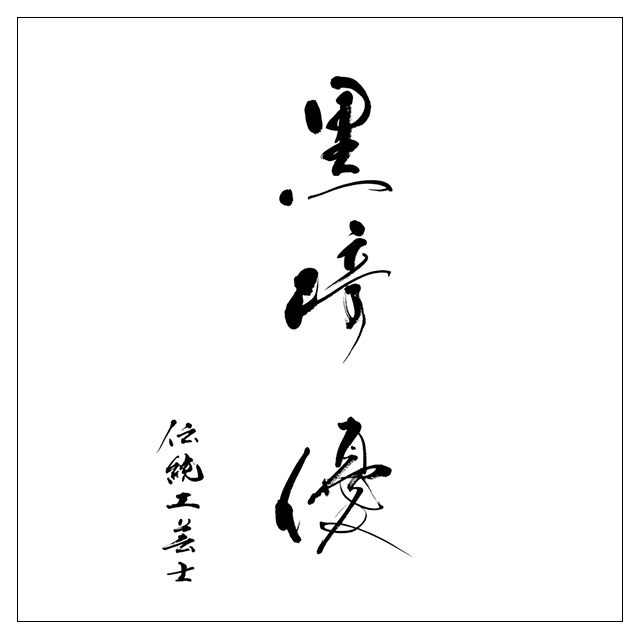 黒﨑優
伝統工芸士